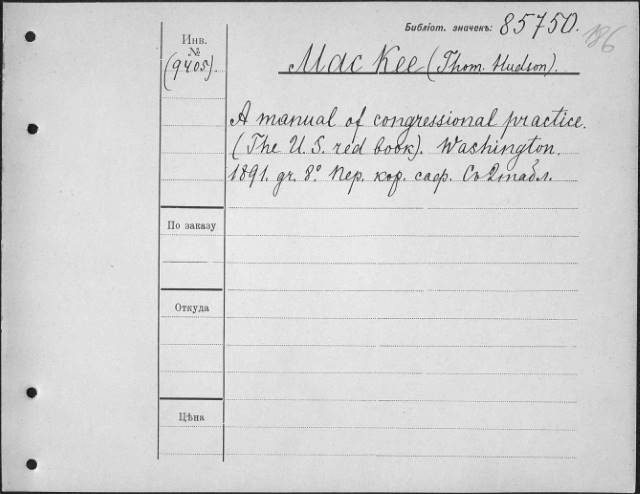 Библіот. значекъ: 85750.
186
Инв.
№
(9405).
Mac Kee (Thom. Hudson).
A manual of congressional practice.
(The U. S. red book). Washington.
1891. gr. 8º. Пер. кор. саф. Съ 2 табл.
По заказу
Откуда
Цѣна